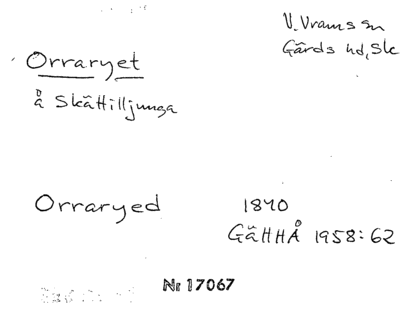 V. Vrams sn
Gärds hd, Sk
Orraryet
å Skättilljunga
Orraryed 1840
GäHHÅ 1958: 62
Nr 17067